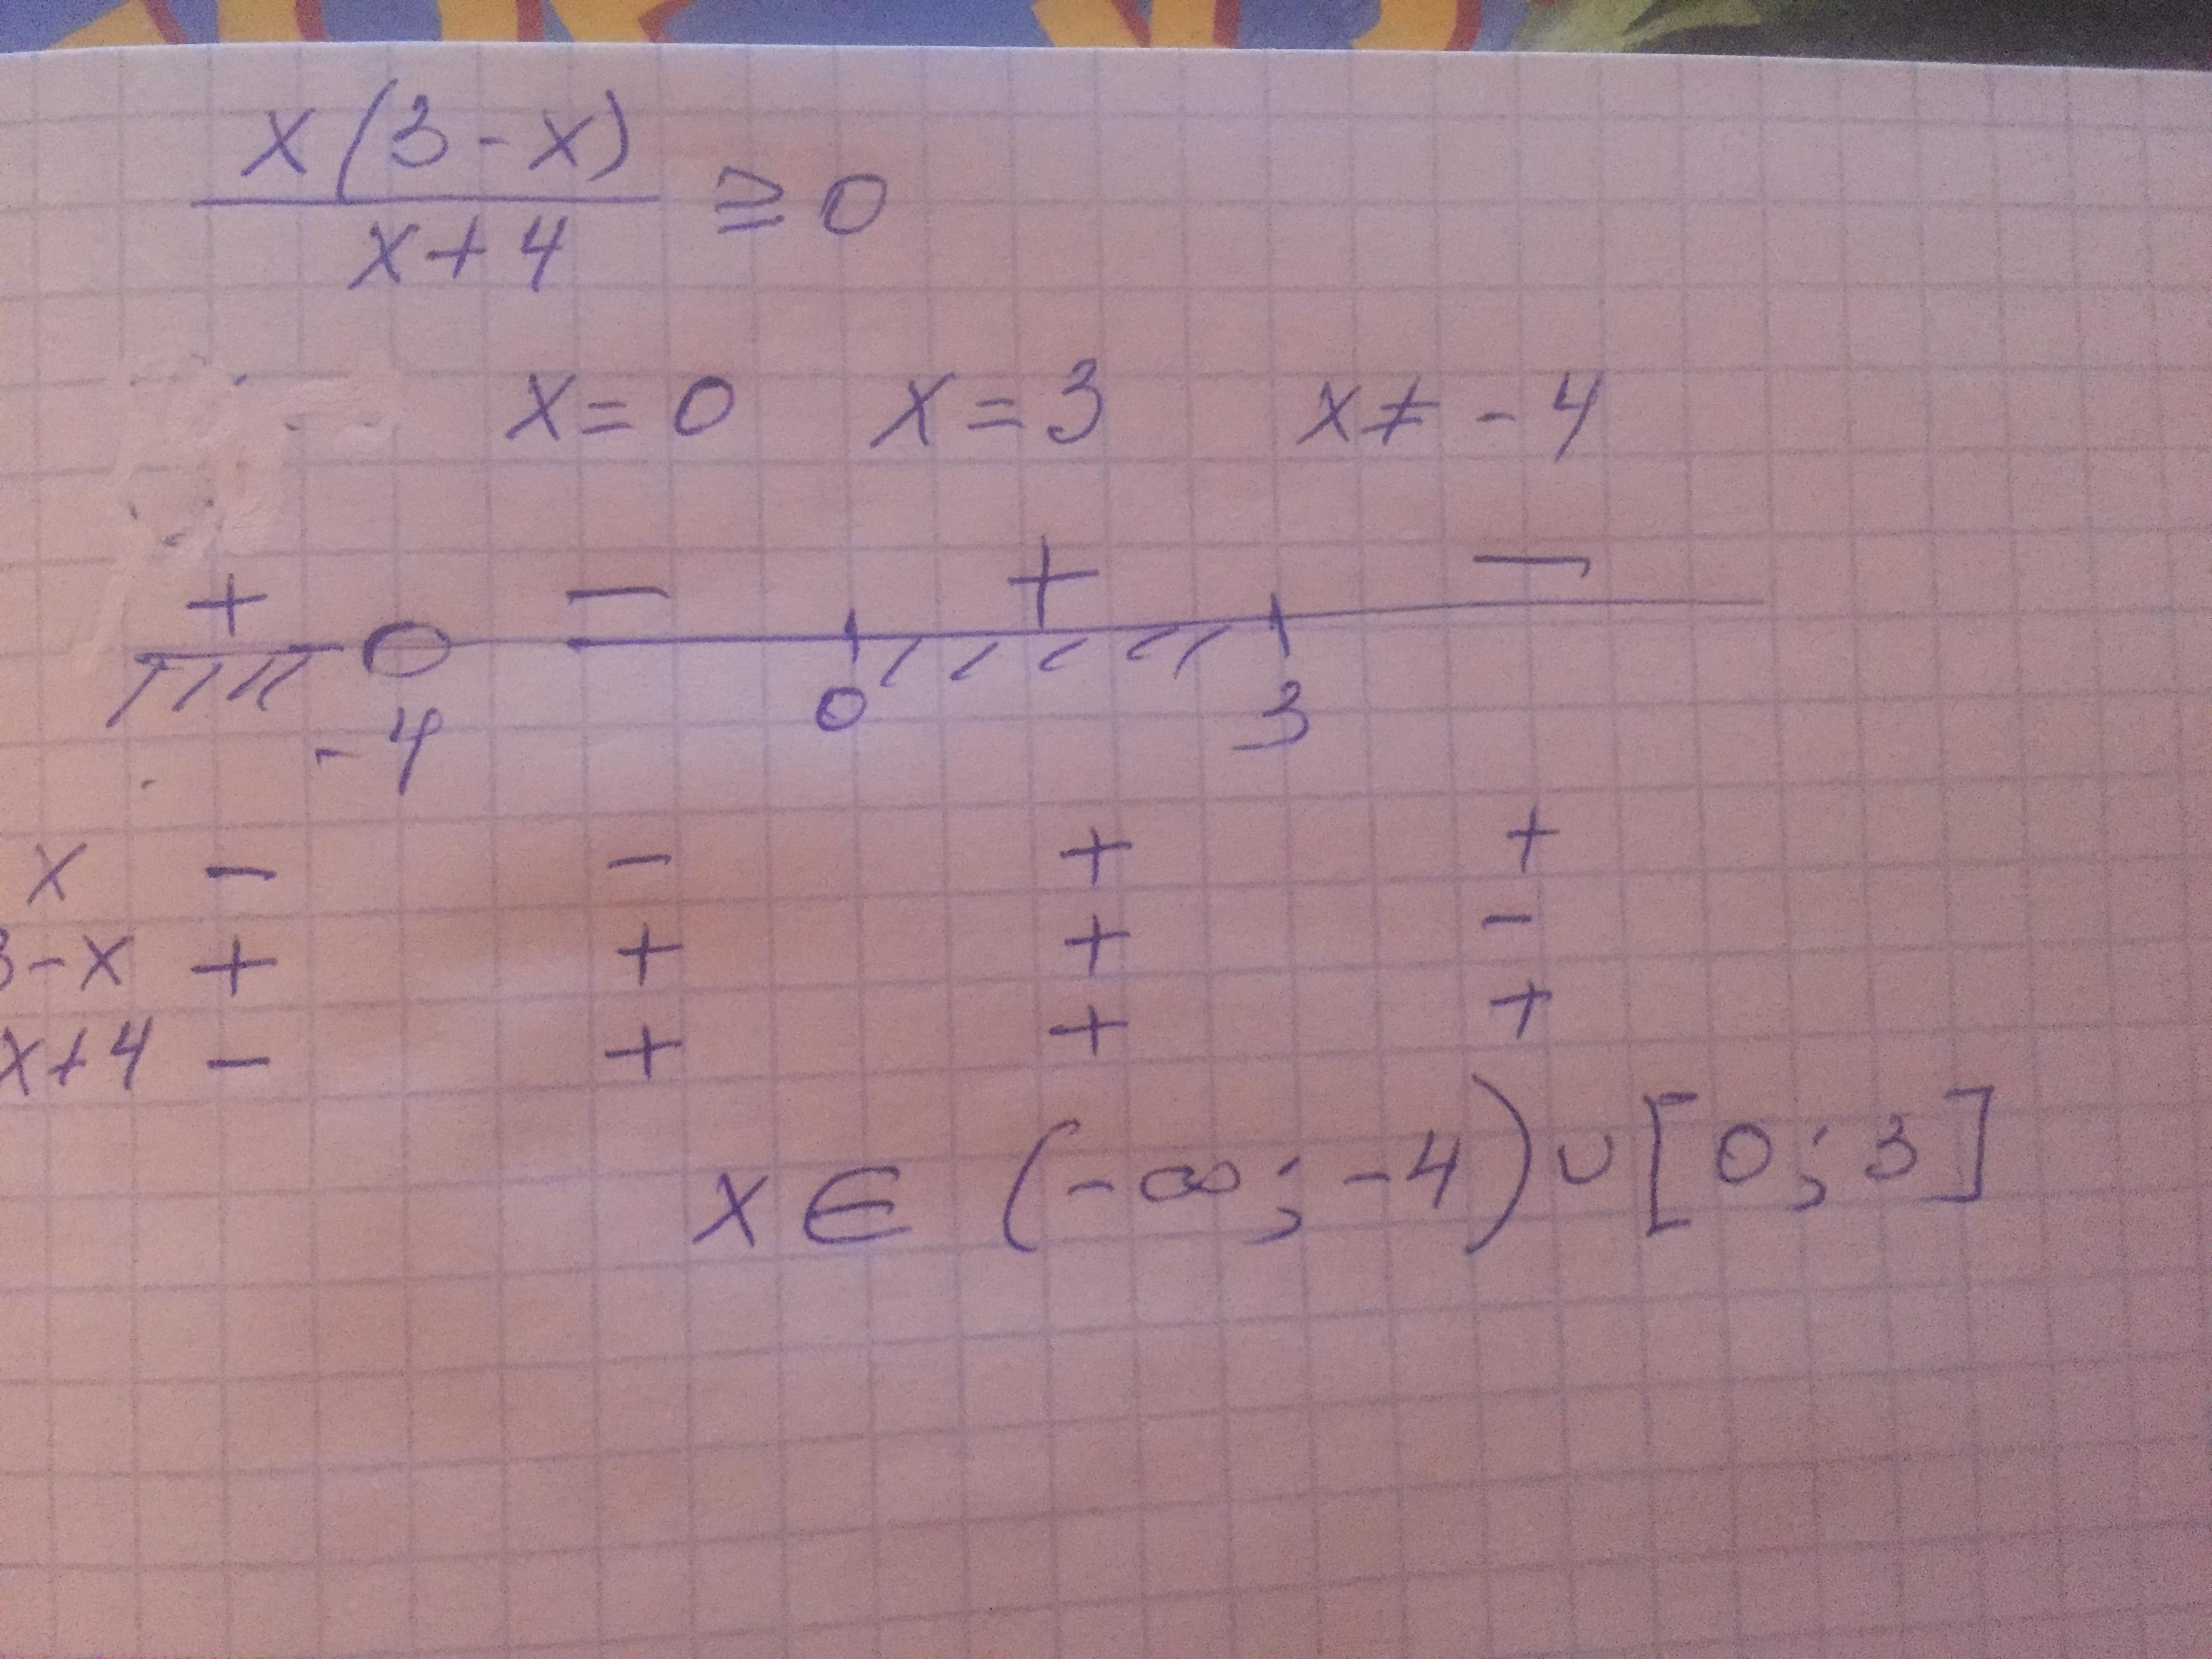 x(3-x)
x+4
≥ 0
x=0 x=3 x≠-4
+ - + -
-4 0 3
x - - + +
3-x + + + -
x+4 - + + +
x∈ (-∞; -4)∪[0; 3]